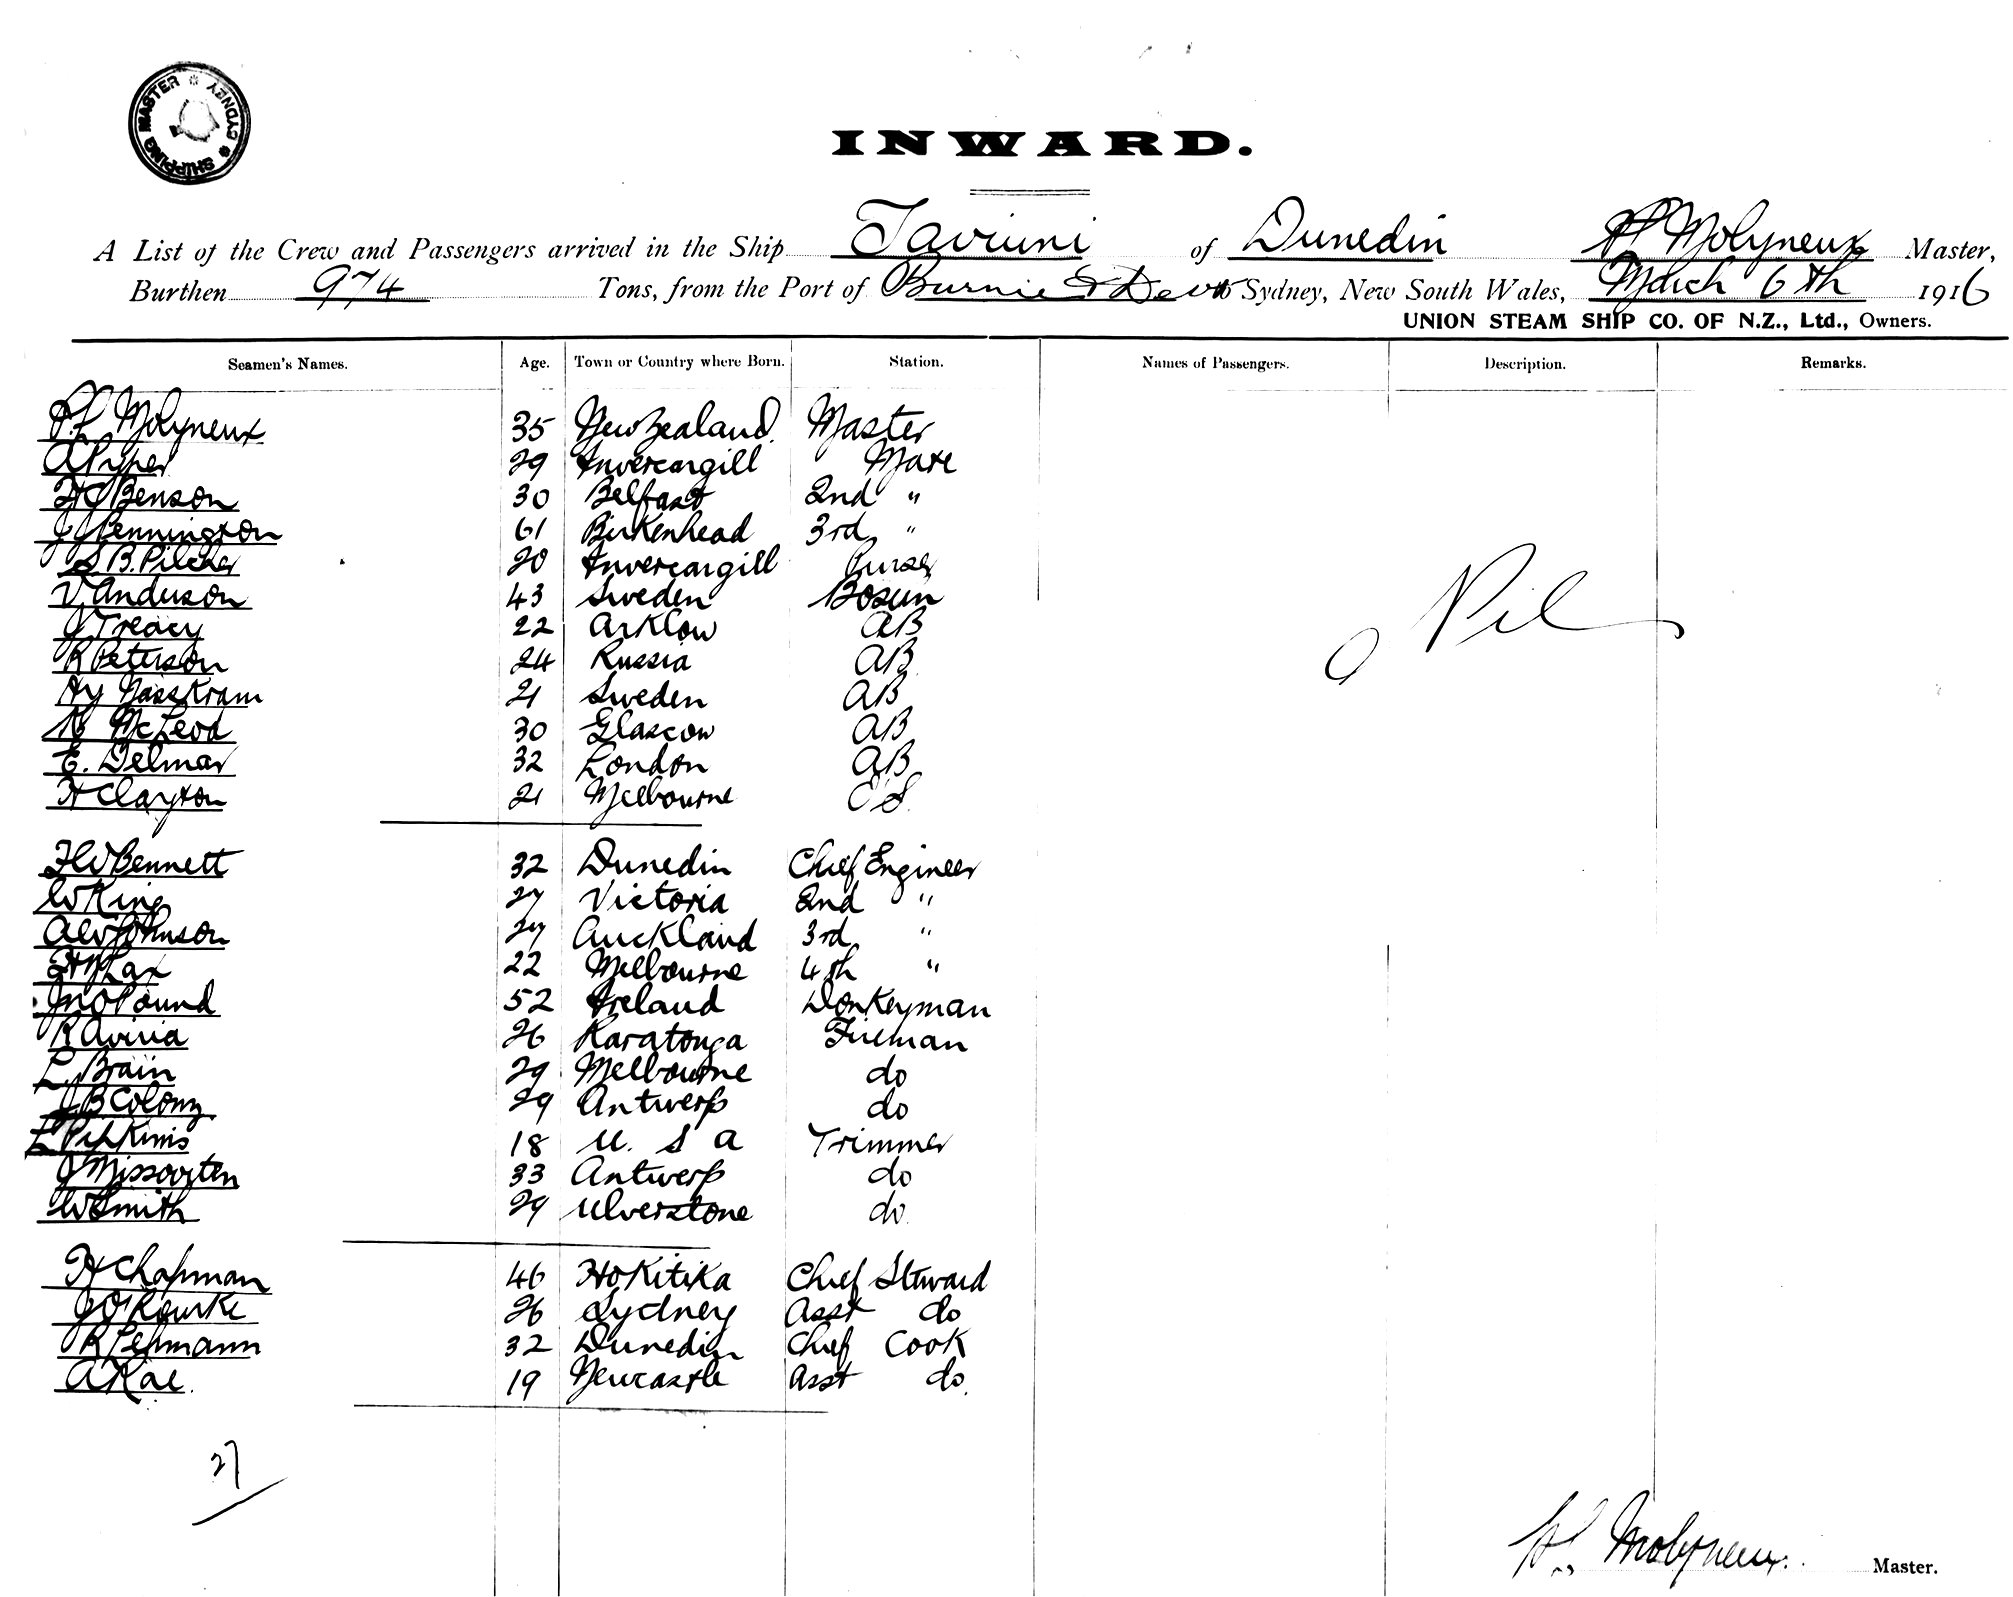 SHIPPING MASTER * SYDNEY *
INWARD.
A List of the Crew and Passengers arrived in the Ship Taviuni of Dunedin Molyneux Master,
Burthen 974 Tons, from the Port of Burnie & Devt to Sydney, New South Wales, March 6th 1916
UNION STEAM SHIP CO. OF N.Z., Ltd., Owners.
Seamen's Names. Age. Town or Country where Born. Station. Names of Passengers. Description. Remarks.
Molyneux 35 New Zealand Master
A Pyper 29 Invercargill Mate
Benson 30 Belfast 2nd "
J Pennington 61 Birkenhead 3rd "
S. B. Pilcher 20 Invercargill Purser
V Anderson 43 Sweden Bosun
J Treacy 22 Arklow AB
R Peterson 24 Russia AB
Hy Nasstram 21 Sweden AB
McLeod 30 Glascow AB
E. Delmar 32 London AB
H Clayton 21 Melbourne OS
Nil
F W Bennett 32 Dunedin Chief Engineer
W King 27 Victoria 2nd "
A W Johnson 27 Auckland 3rd "
Lax 22 Melbourne 4th "
Jno Pound 52 Ireland Donkeyman
R Aviria 26 Raratonga Fireman
L. Brain 29 Melbourne do
J B Colony 29 Antwerp do
Pipkins 18 U. S A Trimmer
J Missooten 33 Antwerp do
W Smith 29 Ulverstone do
H Chapman 46 Hokitika Chief Steward
J O'Rourke 26 Sydney Asst do
R Lehmann 32 Dunedin Chief Cook
A Rae. 19 Newcastle Asst do.
27
Molyneux. Master.